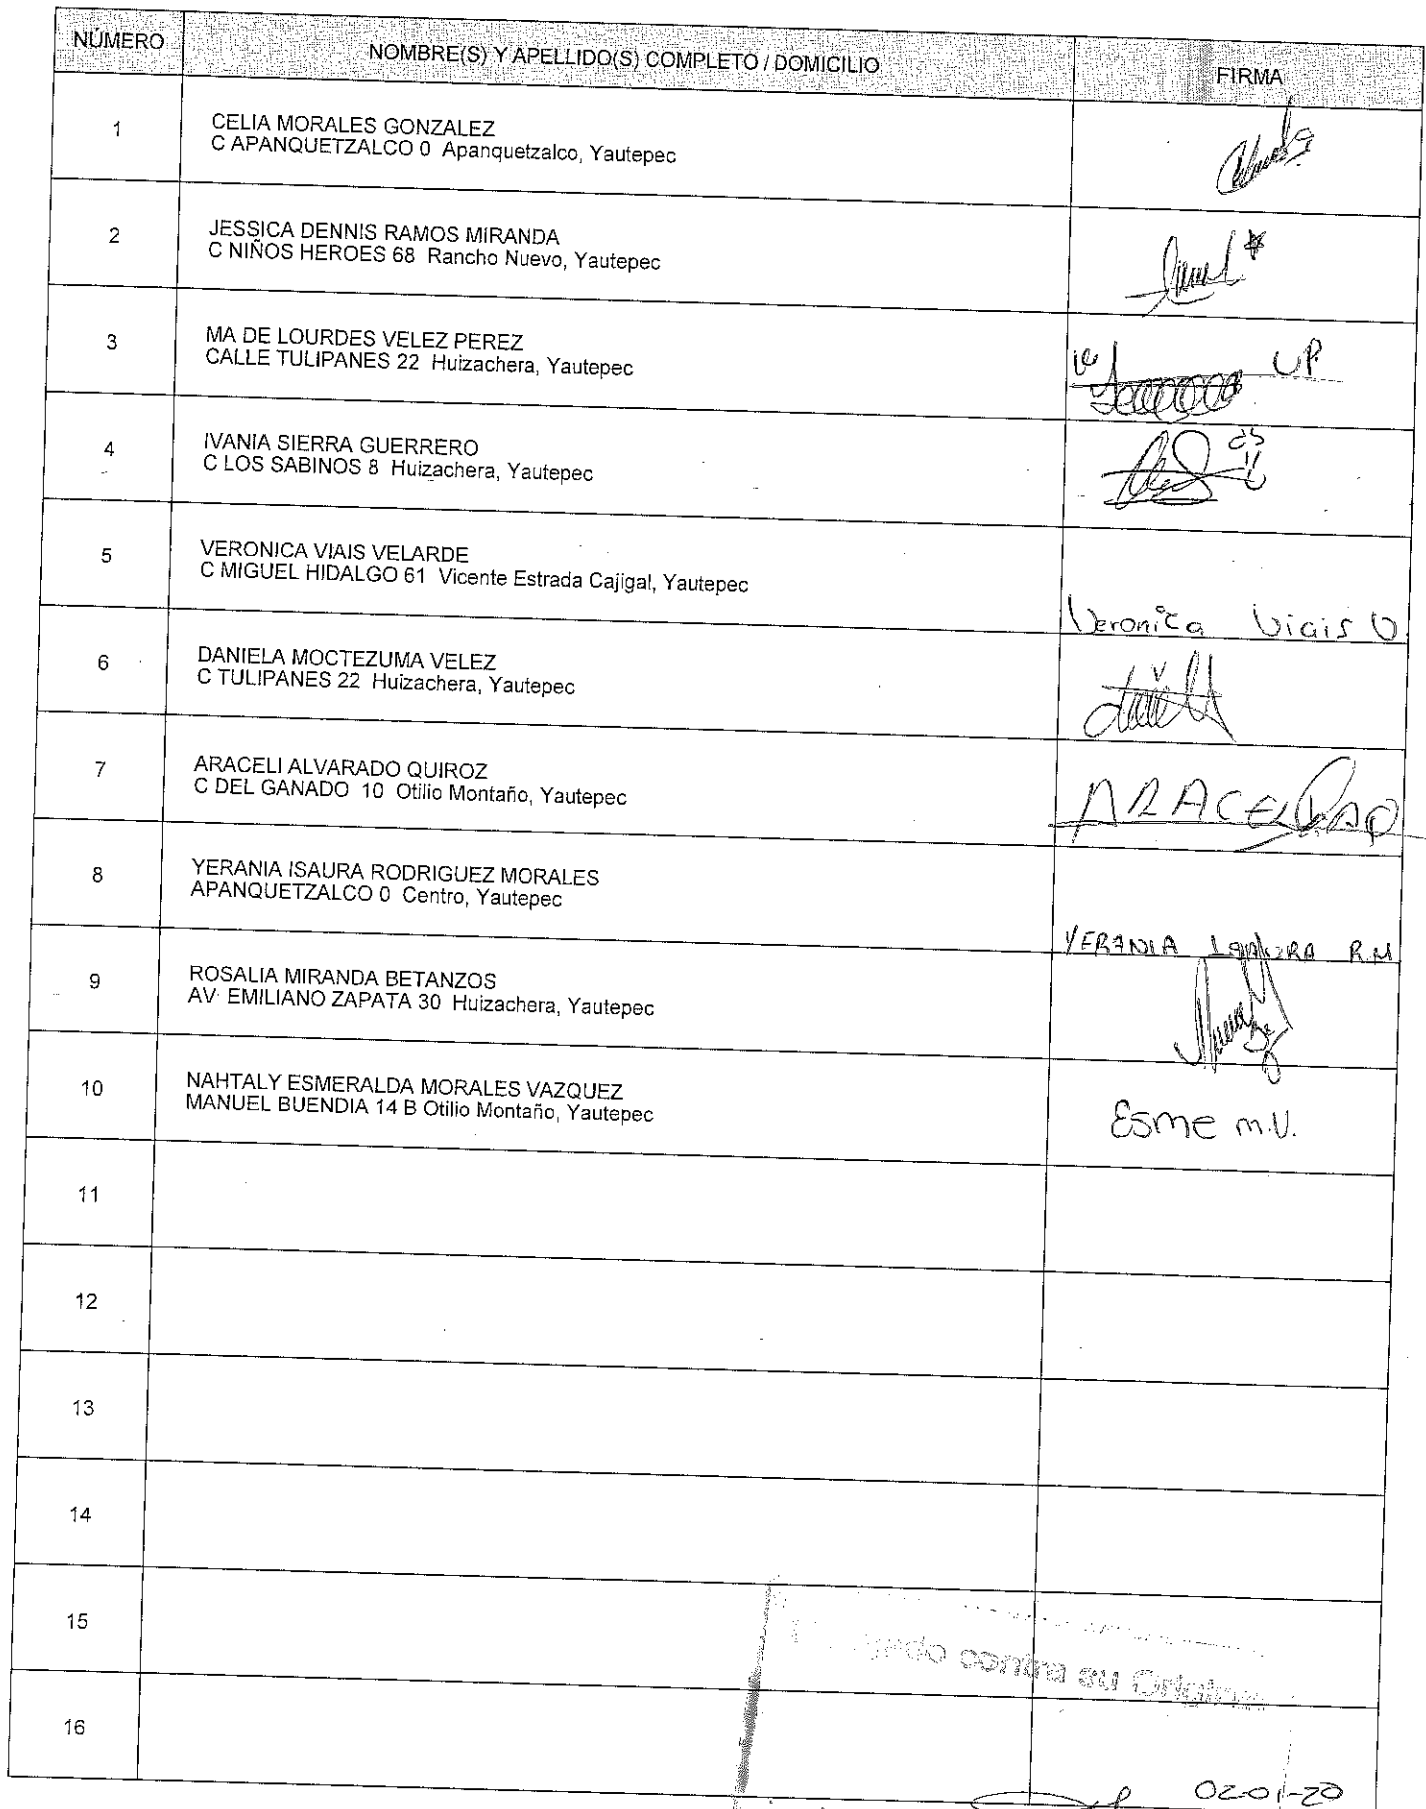 NÚMERO
NOMBRE(S) Y APELLIDO(S) COMPLETO / DOMICILIO
FIRMA
1
CELIA MORALES GONZALEZ
C APANQUETZALCO 0 Apanquetzalco, Yautepec
2
JESSICA DENNIS RAMOS MIRANDA
C NIÑOS HEROES 68 Rancho Nuevo, Yautepec
3
MA DE LOURDES VELEZ PEREZ
CALLE TULIPANES 22 Huizachera, Yautepec
4
IVANIA SIERRA GUERRERO
C LOS SABINOS 8 Huizachera, Yautepec
5
VERONICA VIAIS VELARDE
C MIGUEL HIDALGO 61 Vicente Estrada Cajigal, Yautepec
Veronica Viais V.
6
DANIELA MOCTEZUMA VELEZ
C TULIPANES 22 Huizachera, Yautepec
7
ARACELI ALVARADO QUIROZ
C DEL GANADO 10 Otilio Montaño, Yautepec
8
YERANIA ISAURA RODRIGUEZ MORALES
APANQUETZALCO 0 Centro, Yautepec
YERANIA ISAURA R.M
9
ROSALIA MIRANDA BETANZOS
AV EMILIANO ZAPATA 30 Huizachera, Yautepec
10
NAHTALY ESMERALDA MORALES VAZQUEZ
MANUEL BUENDIA 14 B Otilio Montaño, Yautepec
Esme m.V.
11
12
13
14
15
contra su Original
16
02-01-20